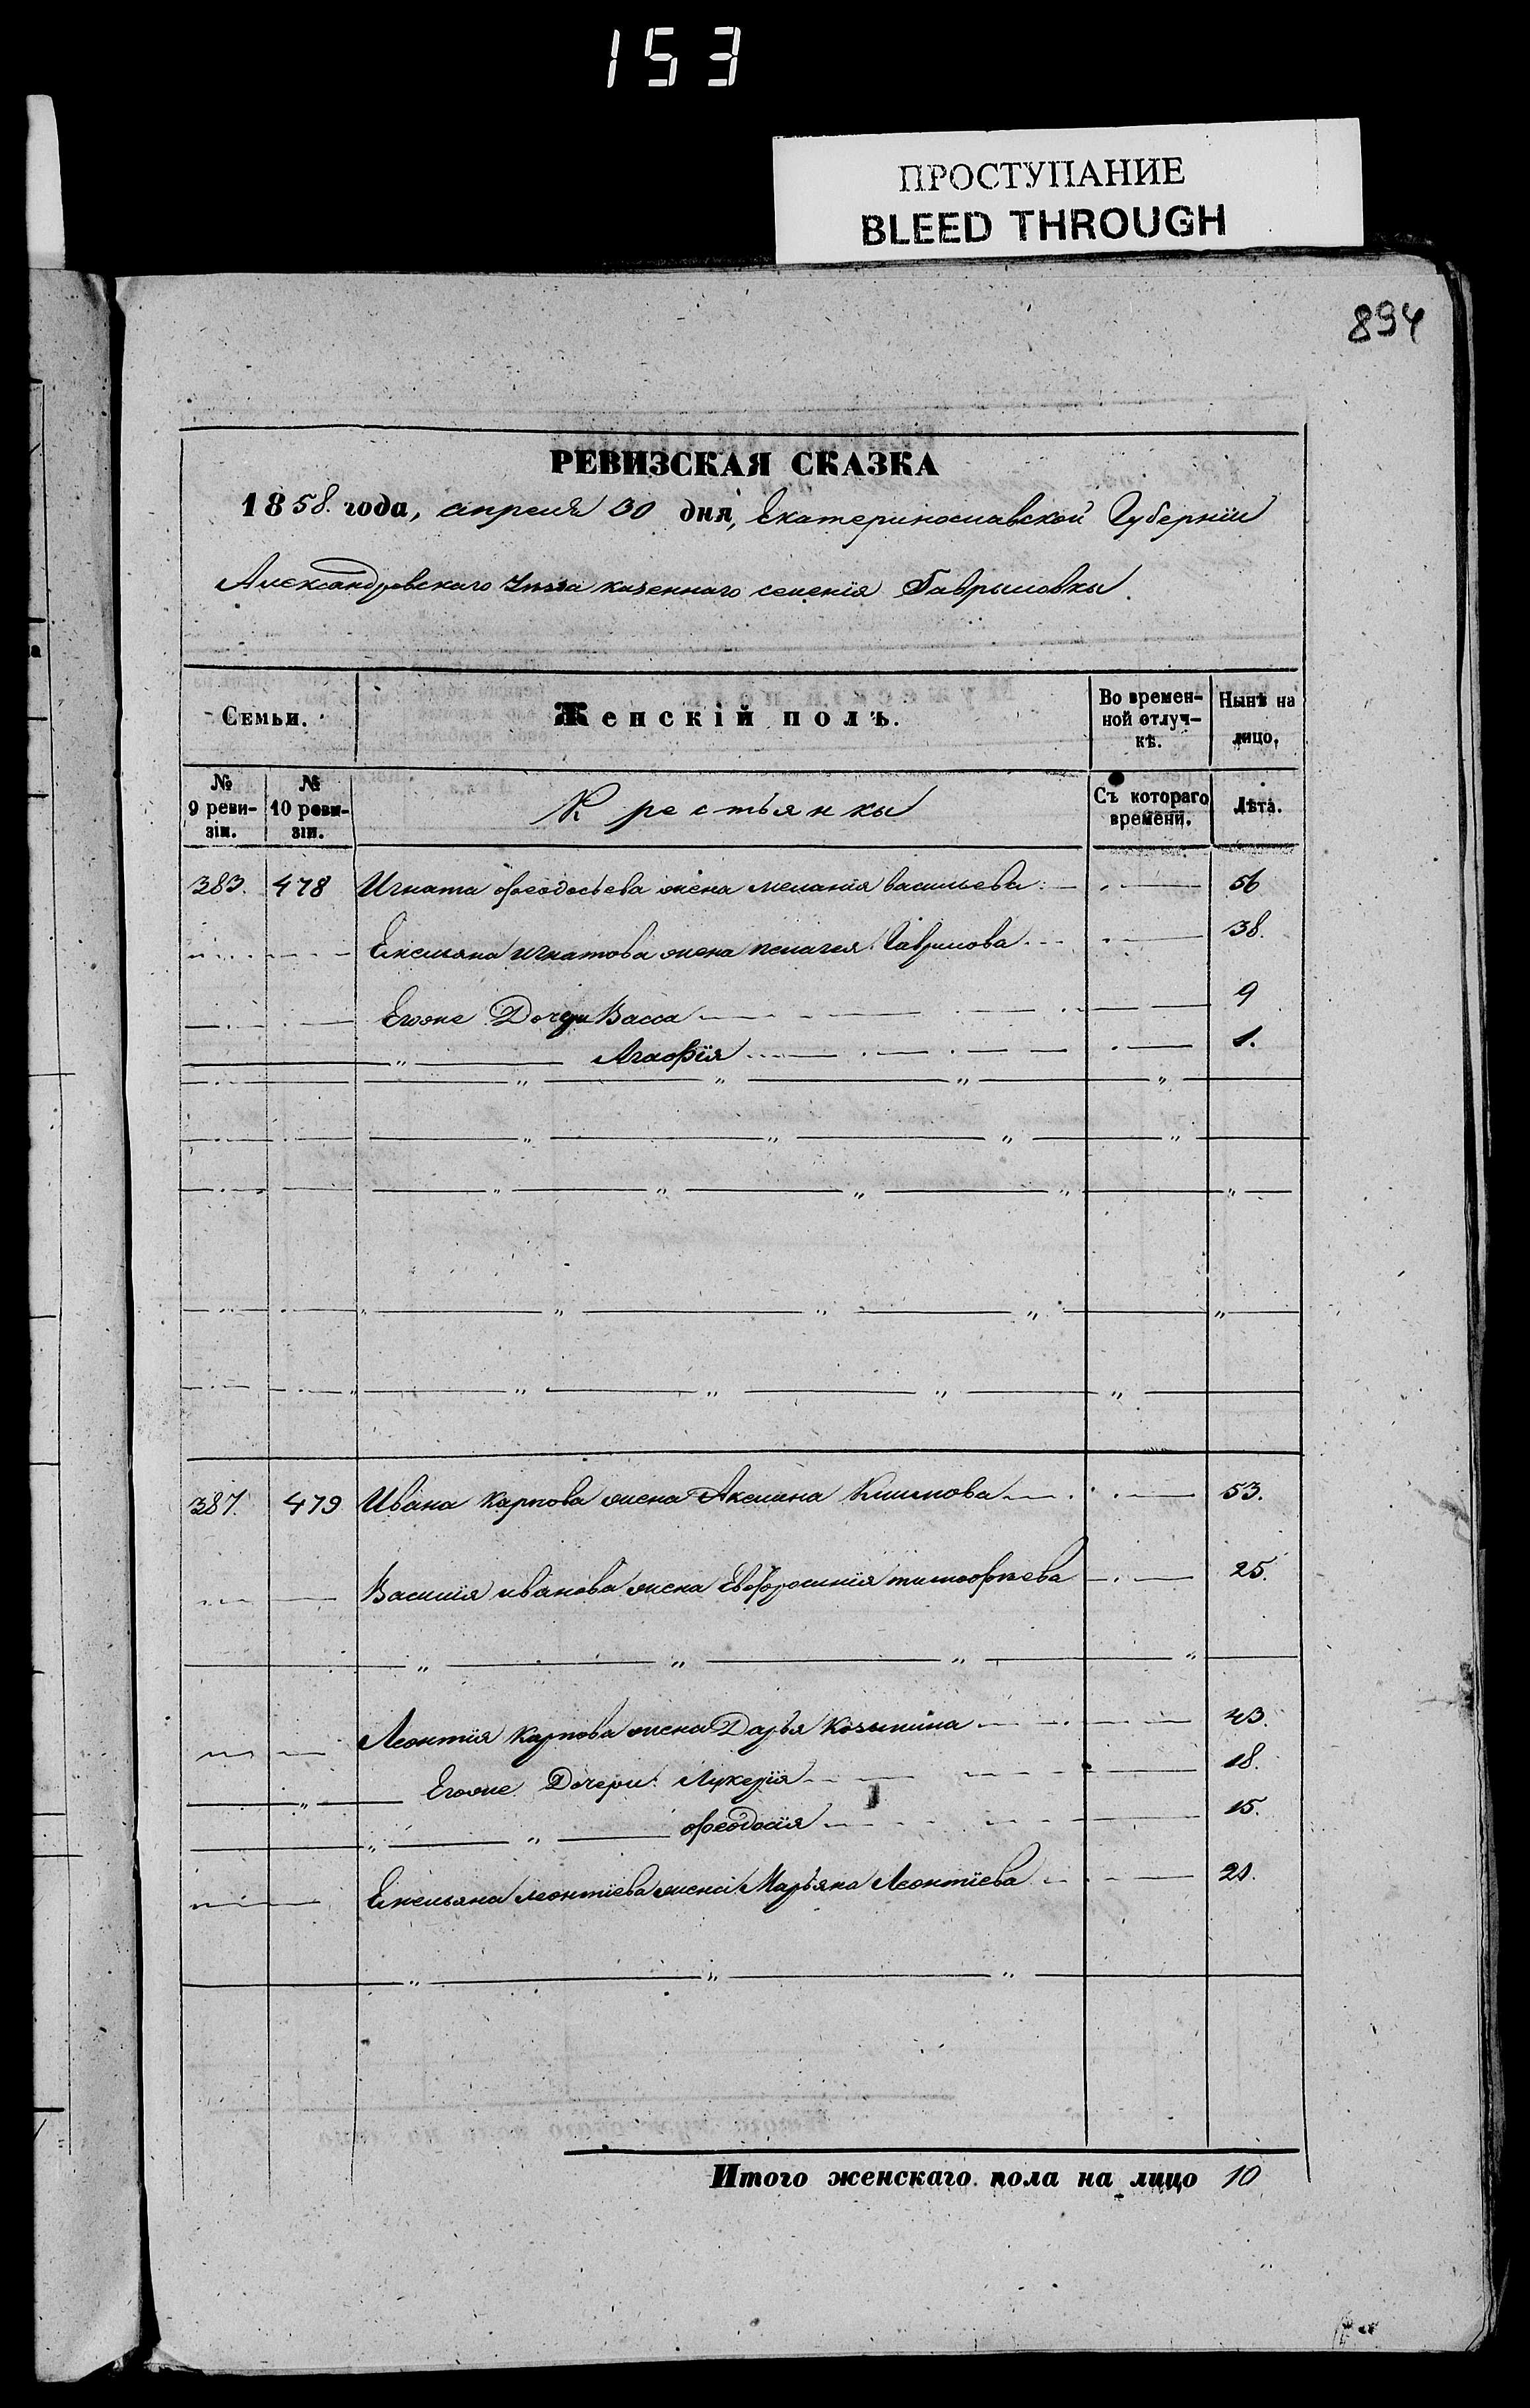 153
ПРОСТУПАНИЕ
BLEED THROUGH
894
РЕВИЗСКАЯ СКАЗКА
1858. года, апреля 30 дня, Екатеринославской Губернiи
Александровскаго Уѣзда казеннаго селенiя Гаврыловкы.
Семьи. Женскiй полъ. Во времен- Нынѣ на
ной отлуч- лицо.
кѣ.
№ № Крестьянкы Съ котораго Лѣта.
9 реви- 10 реви- времени.
зiи. зiи.
383. 478 Игната феодосьева жена мелания васильева 56
Емельяна игнатова жена пелагея Гаврилова 38.
Егоже Дочери Васса 9
„ Агафiя 1.
387. 479 Ивана Карпова жена Акелина Климова 53.
Василiя иванова жена Евфросинiя тимофѣева 25.
Леонтiя Карпова жена Дарья Козьмина 43.
Егоже Дочери Лукерiя 18.
„ „ феодосiя 15.
Емельяна леонтiева жена Марьяна Леонтiева 21.
Итого женскаго пола на лицо 10